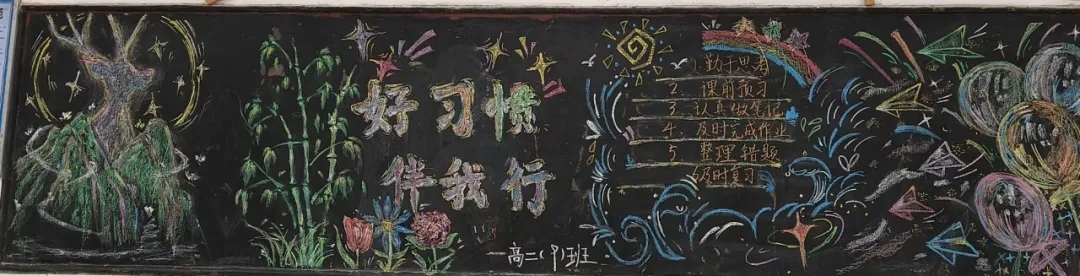 好习惯
伴我行
1. 勤于思考
2. 课前预习
3. 认真做笔记
4. 及时完成作业
5. 整理错题
6. 及时复习
高二(9)班